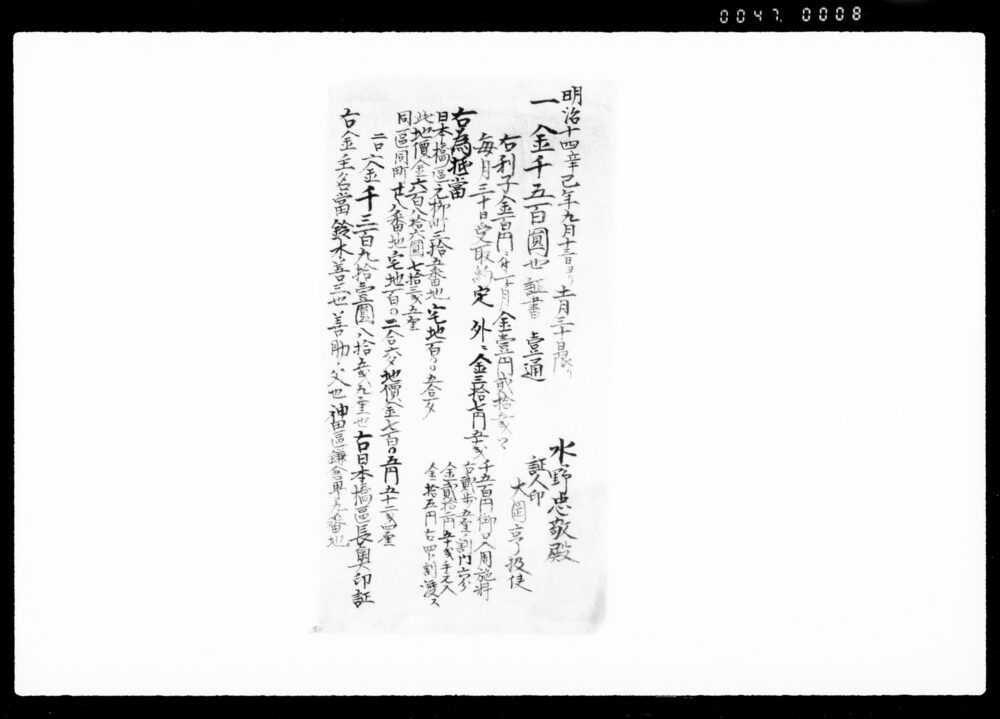 0047. 0008
明治十四辛巳年九月十三日ヨリ十一月三十日限リ
一金千五百圓也証書壹通
水野忠敬殿
証人印
大岡亨投使
右利子金百円ニ付一ケ月金壹円貳拾五戋
毎月三十日受取約定外ニ金三拾七円五十戋
千五百円御口入周施料
右貳歩五厘ノ割
金貳拾二円五十戋手元入
金拾五円右四分割渡ス
右為抵當
日本橋區元柳町三拾五番地宅地百〇五合夕
此地價金六百八拾六圓七拾三戋五厘
同區同町廿八番地宅地百〇二合夕地價金七百〇五円五十二戋四厘
二口〆金千三百九拾壹圓八拾五戋九重也右日本橋區長奥印証
右金主名當鈴木善三也善助ノ父也神田區鎌倉町九番地